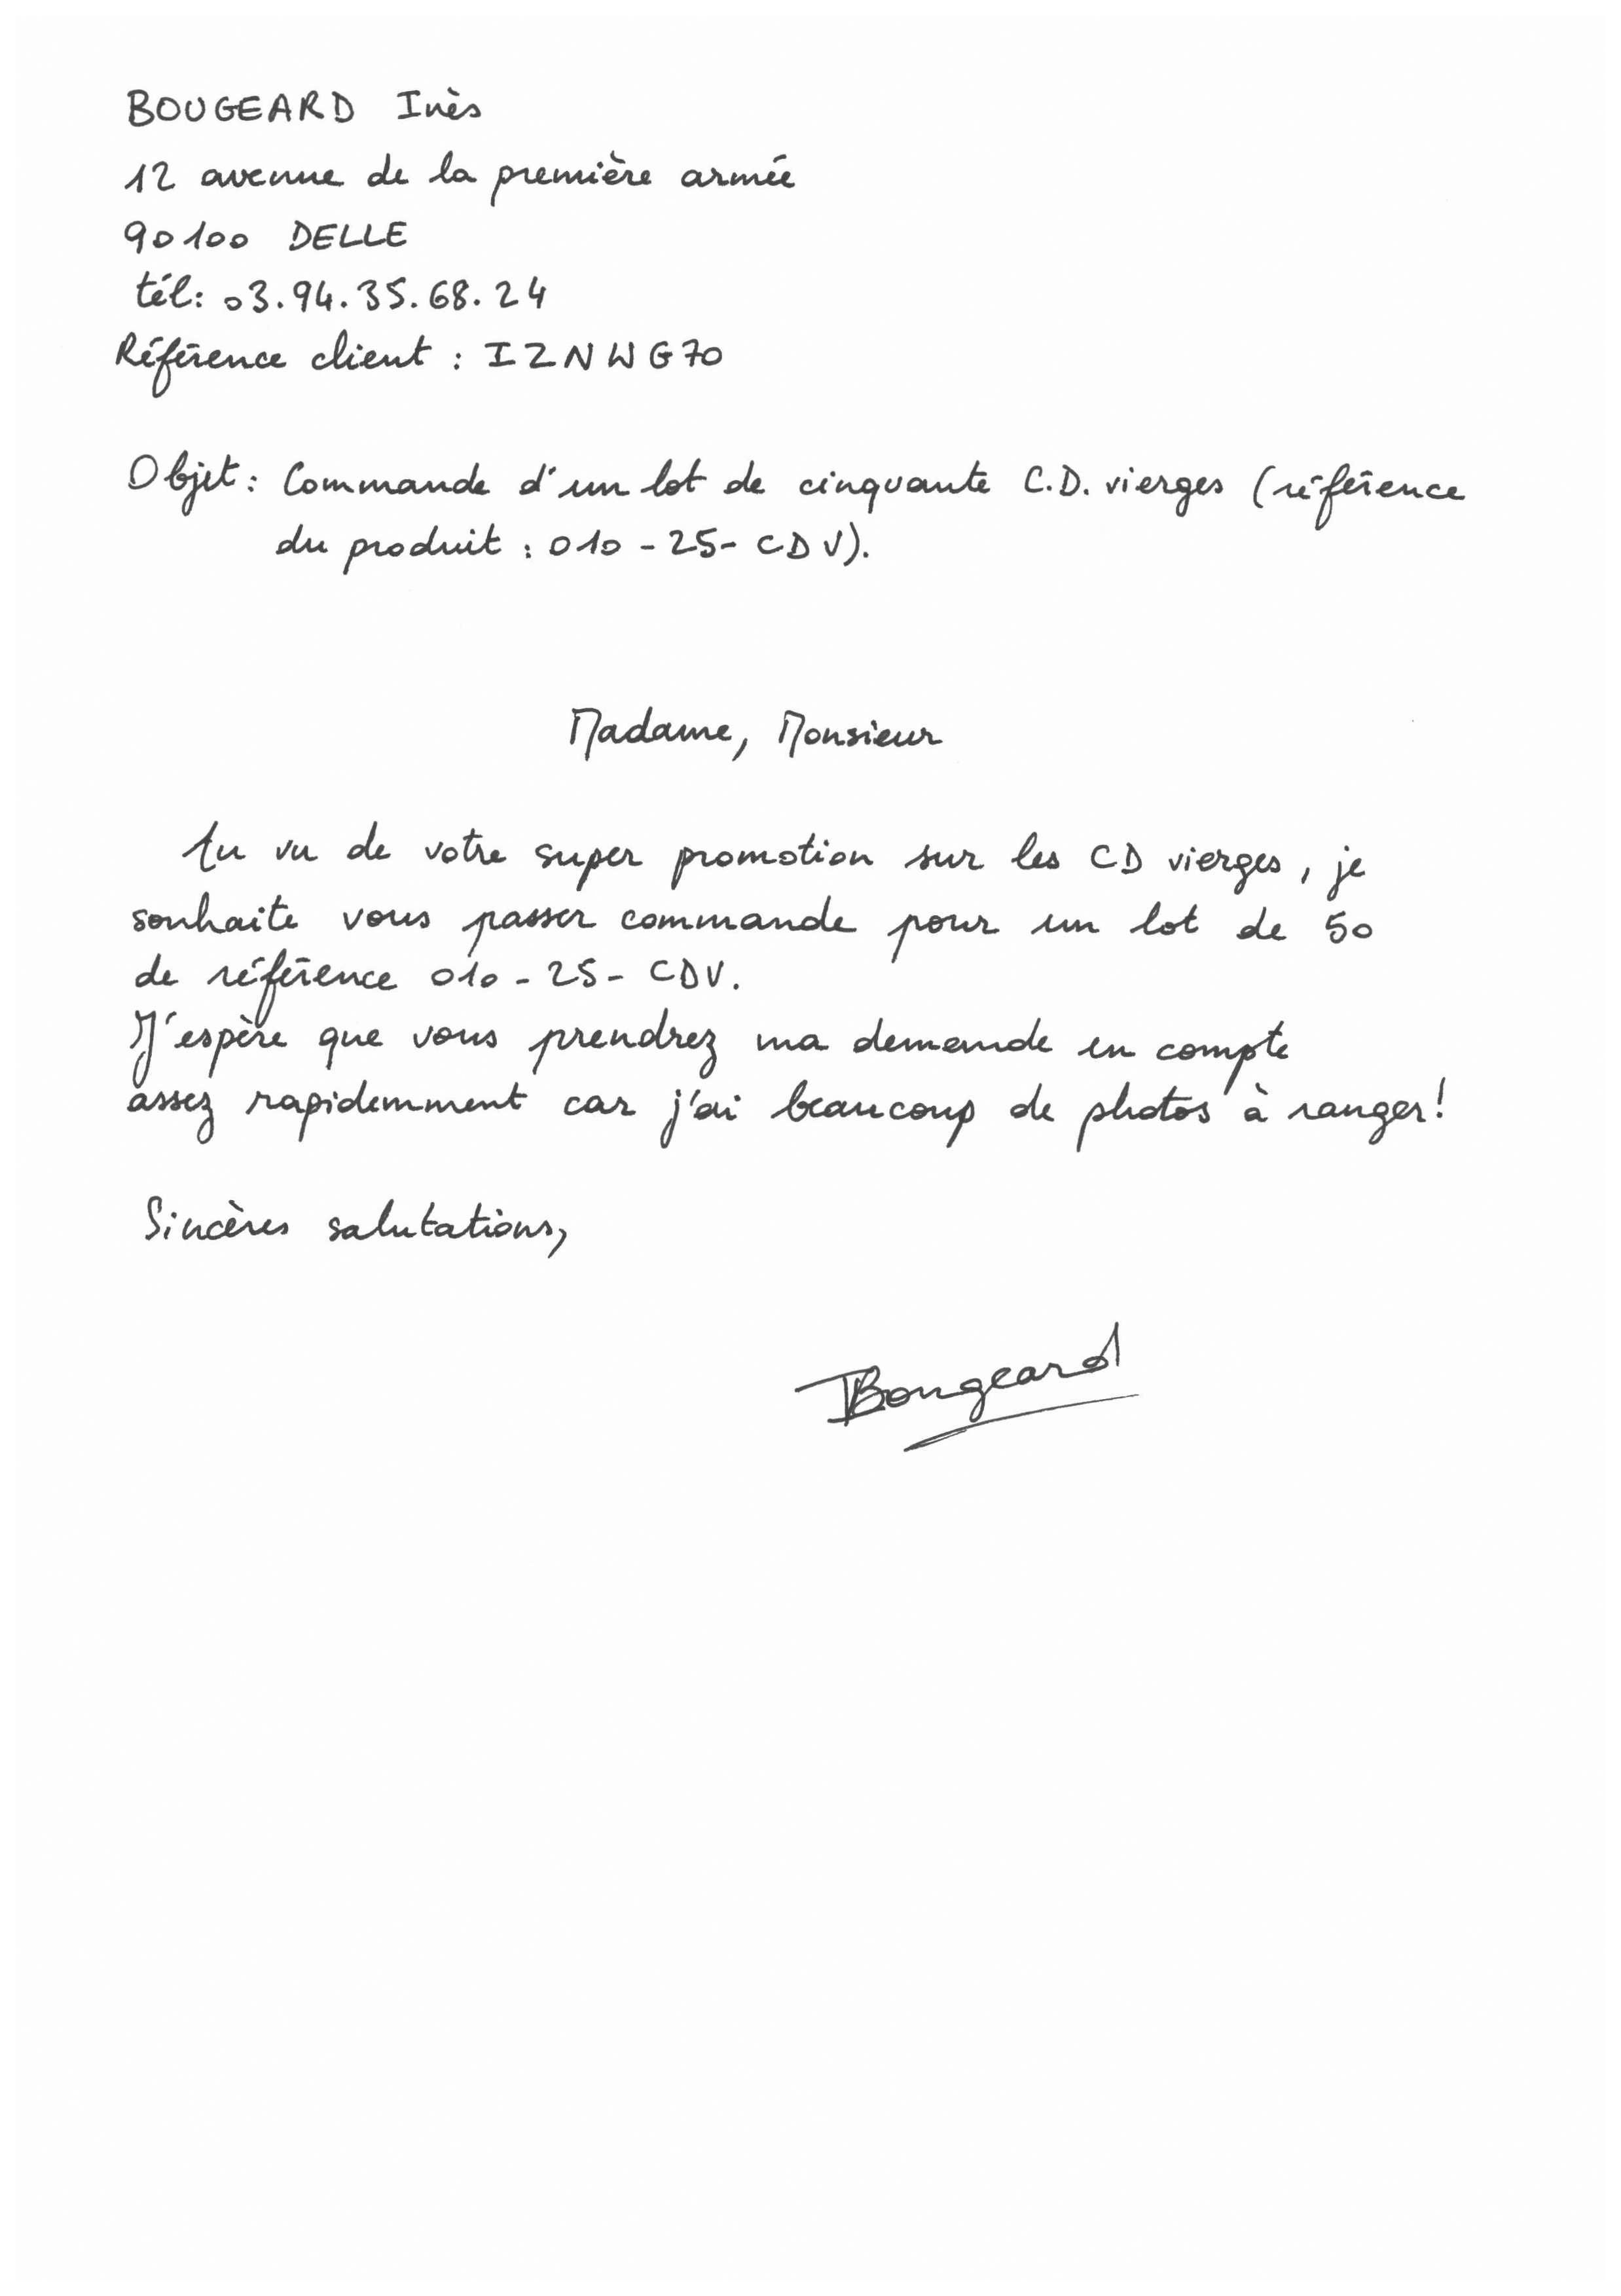 BOUGEARD Inès
12 avenue de la première armée
90100 DELLE
tél: 03.94.35.68.24
Référence client : IZNWG70
Objet: Commande d'un lot de cinquante C.D. vierges (référence
du produit : 010-25-CDV).
Madame, Monsieur
Au vu de votre super promotion sur les CD vierges, je
souhaite vous passer commande pour un lot de 50
de référence 010-25-CDV.
J'espère que vous prendrez ma demande en compte
assez rapidemment car j'ai beaucoup de photos à ranger!
Sincères salutations,
IBougeard